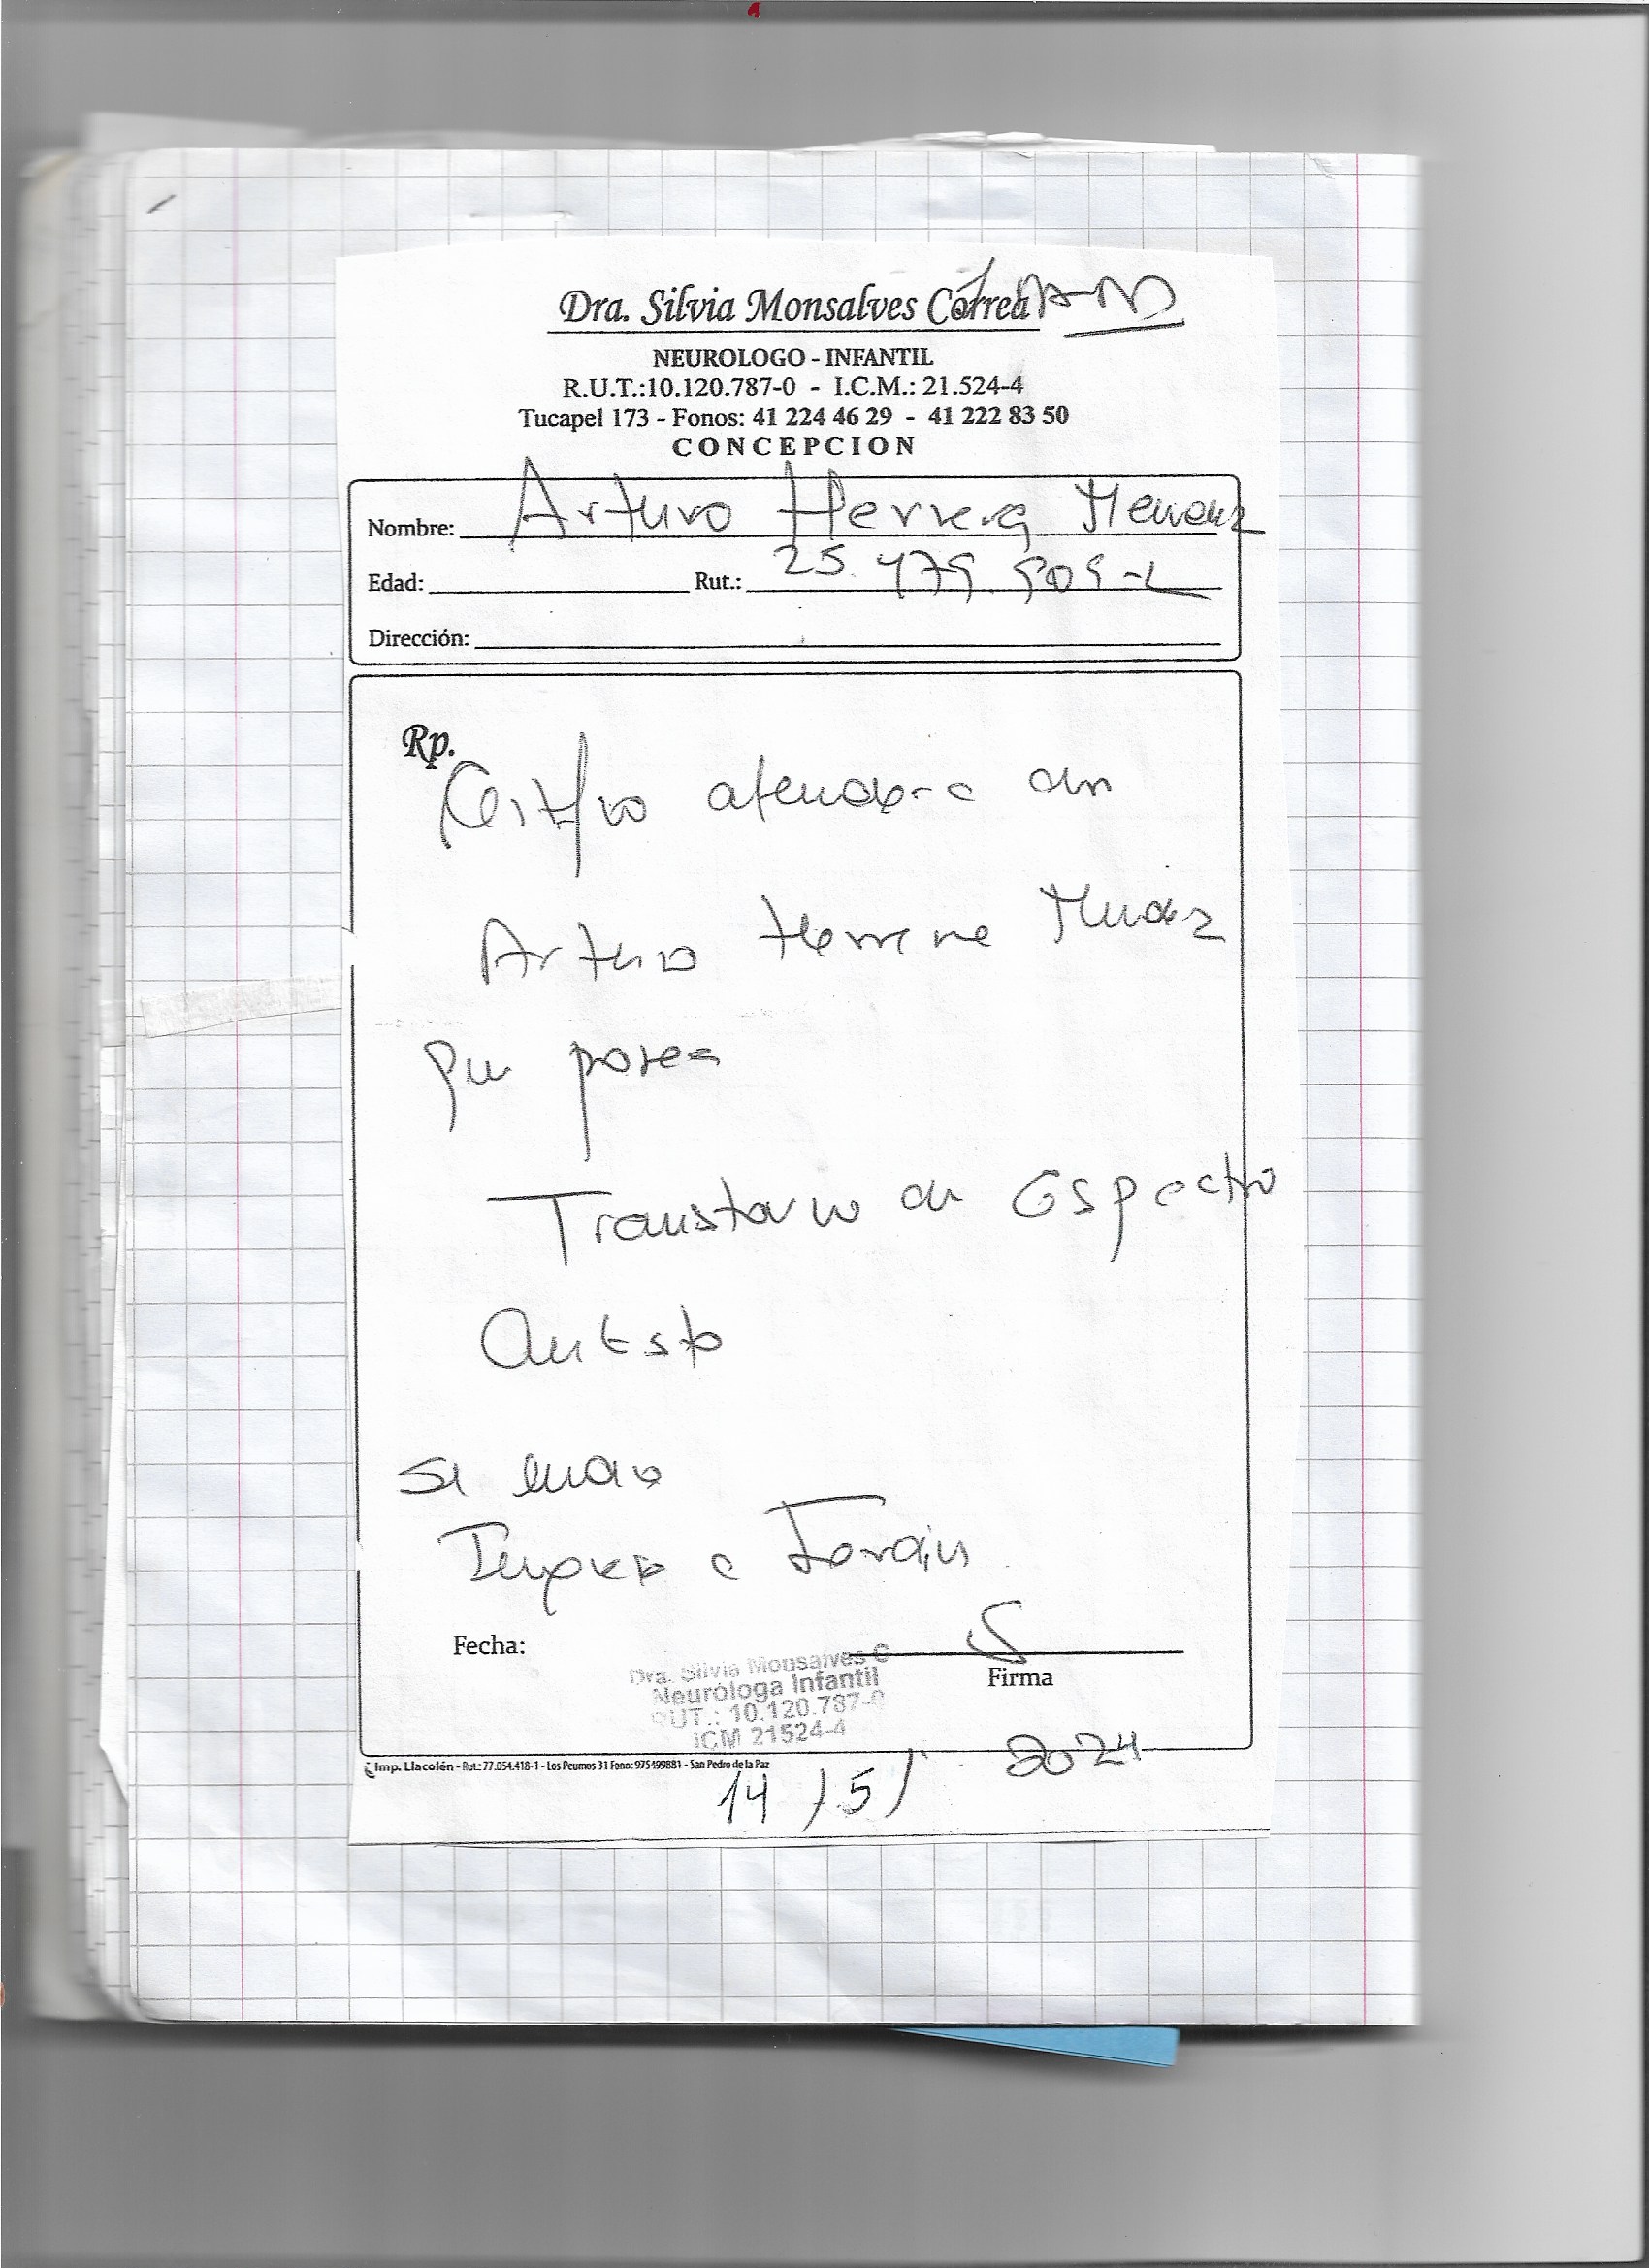 Dra. Silvia Monsalves Correa
NEUROLOGO - INFANTIL
R.U.T.:10.120.787-0 - I.C.M.: 21.524-4
Tucapel 173 - Fonos: 41 224 46 29 - 41 222 83 50
CONCEPCION
Nombre: Arturo Herrera Mendez
Edad: Rut.: 25.479.909-
Dirección:
Rp.
Certifico atender a
Arturo Herrera Mendez
que posee
Transtorno de Espectro
Autista
Se
Fecha:
Firma
Dra. Silvia Monsalves C
Neuróloga Infantil
RUT.: 10.120.787-0
ICM 21524-4
Imp. Llacolén - Rut.: 77.054.418-1 - Los Peumos 31 Fono: 975499881 - San Pedro de la Paz
14 / 5 / 2024